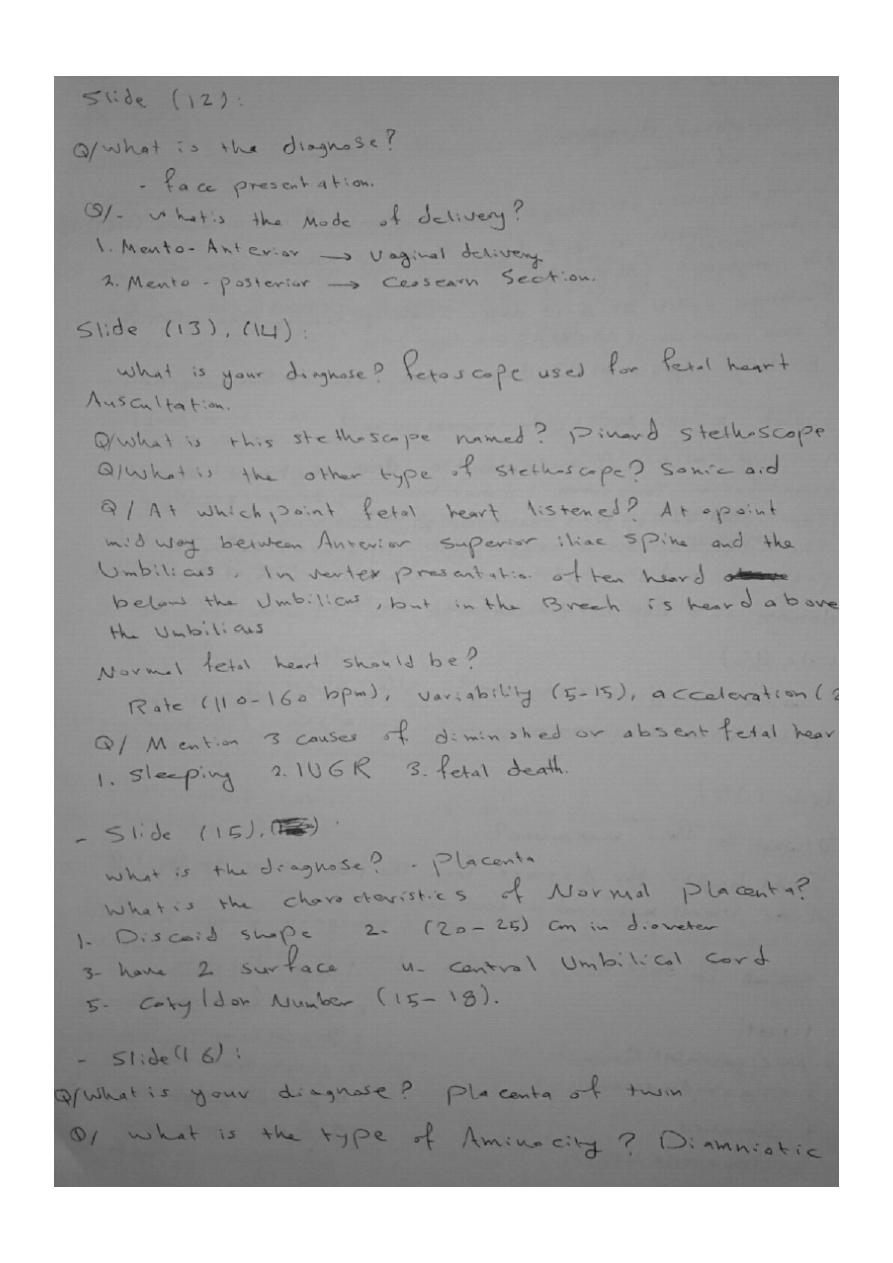 Slide (12):
Q/What is the diagnose?
- face presentation.
Q/- what is the Mode of delivery?
1. Mento-Anterior → Vaginal delivery
2. Mento-posterior → Ceosearn Section.
Slide (13), (14):
what is your diagnose? Fetoscope used for fetal heart
Auscultation.
Q/What is this stethoscope named? Pinard stethoscope
Q/What is the other type of stethoscope? Sonic aid
Q/ At which point fetal heart listened? At a point
midway between Anterior superior iliac spine and the
Umbilicus. In vertex presentatio. often heard
below the Umbilicus, but in the Breech is heard above
the Umbilicus
Normal fetal heart should be?
Rate (110-160 bpm), variability (5-15), acceleration (2
Q/ Mention 3 causes of diminshed or absent fetal hear
1. Sleeping 2. IUGR 3. fetal death.
- Slide (15),
what is the diagnose? - Placenta
what is the charactevistics of Normal placenta?
1- Discoid shape 2- (20-25) cm in diameter
3- have 2 surface 4- central Umbilical Cord
5- Cotyldon Number (15-18).
- Slide (16):
Q/What is your diagnose? Placenta of twin
Q/ what is the type of Aminocity? Diamniotic